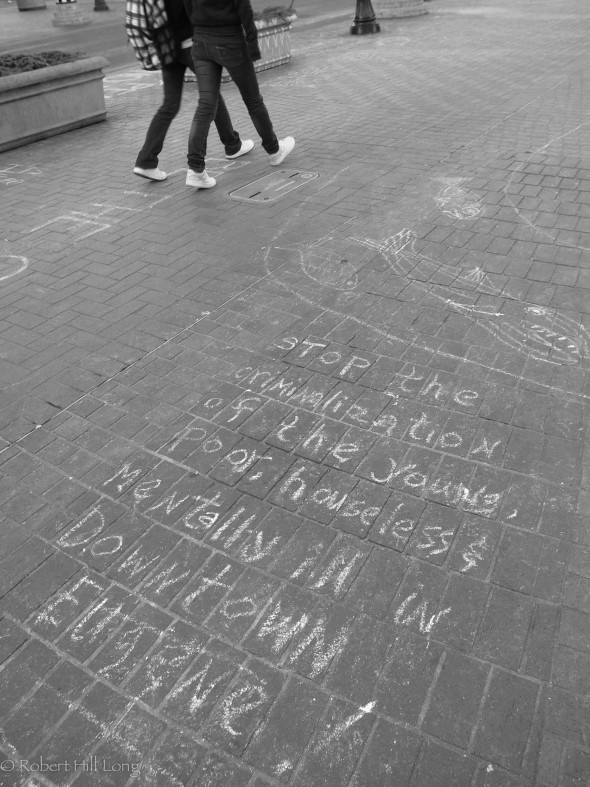 STOP the
criminalization
of the young,
Poor, houseless &
mentally iN iN
DowntowN
EugeNe
© Robert Hill Long